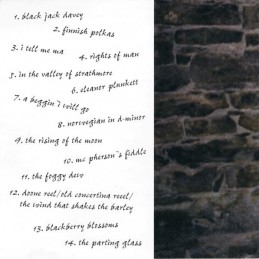 1. black jack davey
2. finnish polkas
3. i tell me ma
4. rights of man
5. in the valley of strathmore
6. eleanor plunkett
7. a beggin' i will go
8. norwegian in d-minor
9. the rising of the moon
10. mc pherson's fiddle
11. the foggy dew
12. doone reel/old concertina reel/
the wind that shakes the barley
13. blackberry blossoms
14. the parting glass